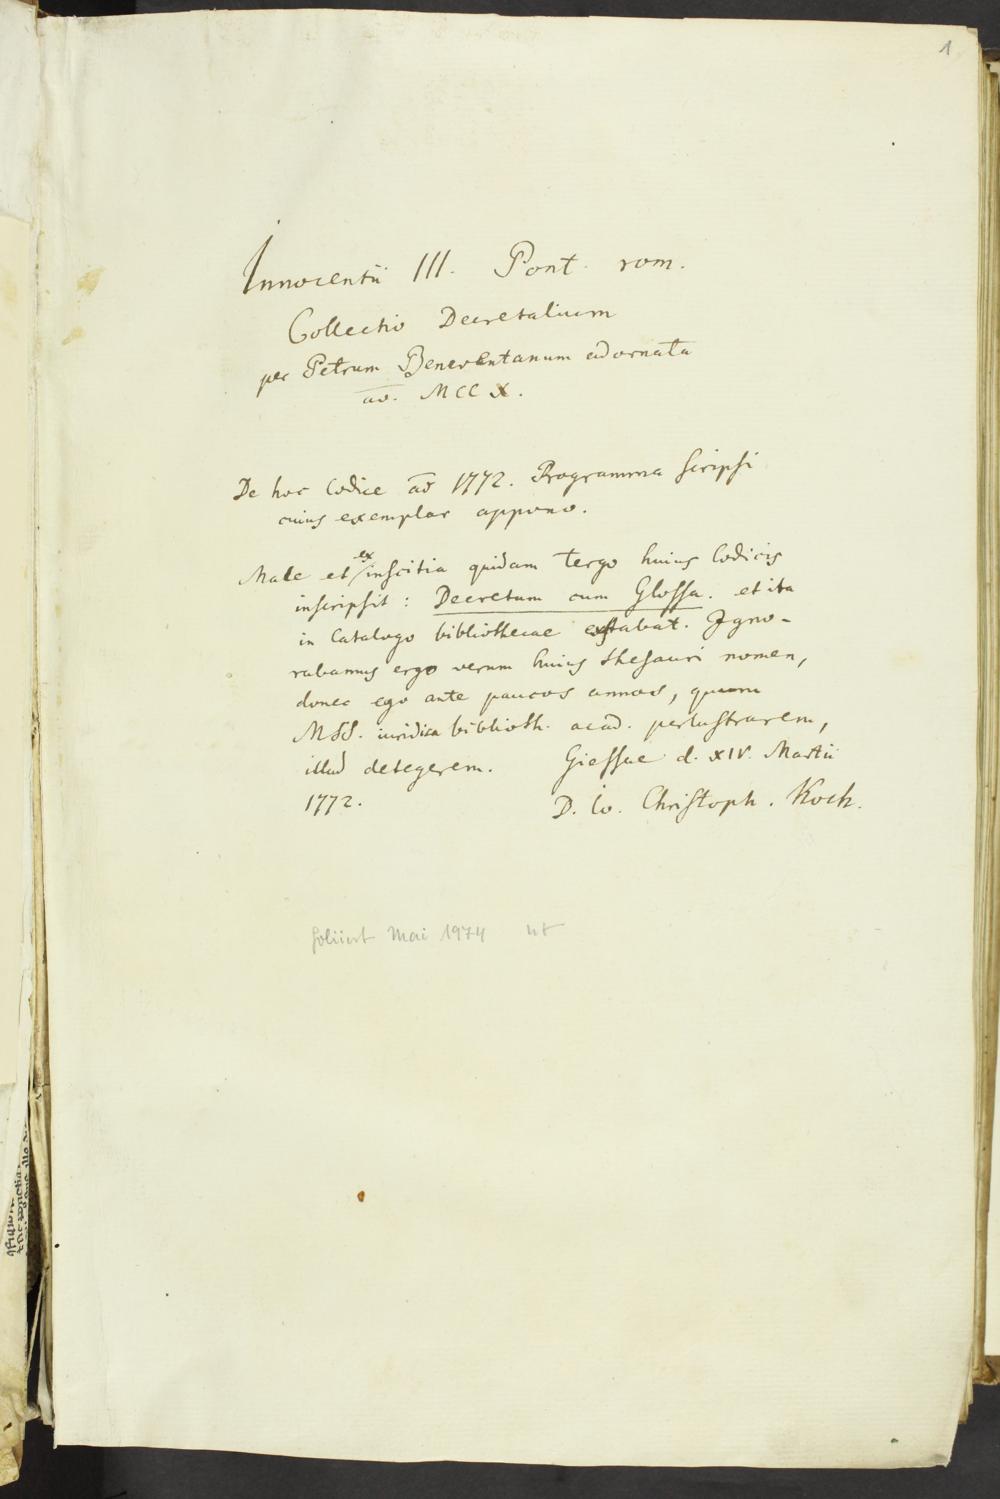 1
Innocentii III. Pont. rom.
Collectio Decretalium
per Petrum Beneventanum adornata
ao. MCCX.
De hoc Codice ao 1772. Programma scripsi
cuius exemplar appono.
Male et ex inscitia quidam tergo huius Codicis
inscripsit: Decretum cum Glossa. et ita
in Catalogo bibliothecae exstabat. Igno-
rabamus ergo verum huius thesauri nomen,
donec ego ante paucos annos, quum
MSS. iuridica biblioth. acad. perlustrarem,
illud detegerem. Giessae d. XIV. Martii
1772. D. Io. Christoph. Koch.
foliiert Mai 1974